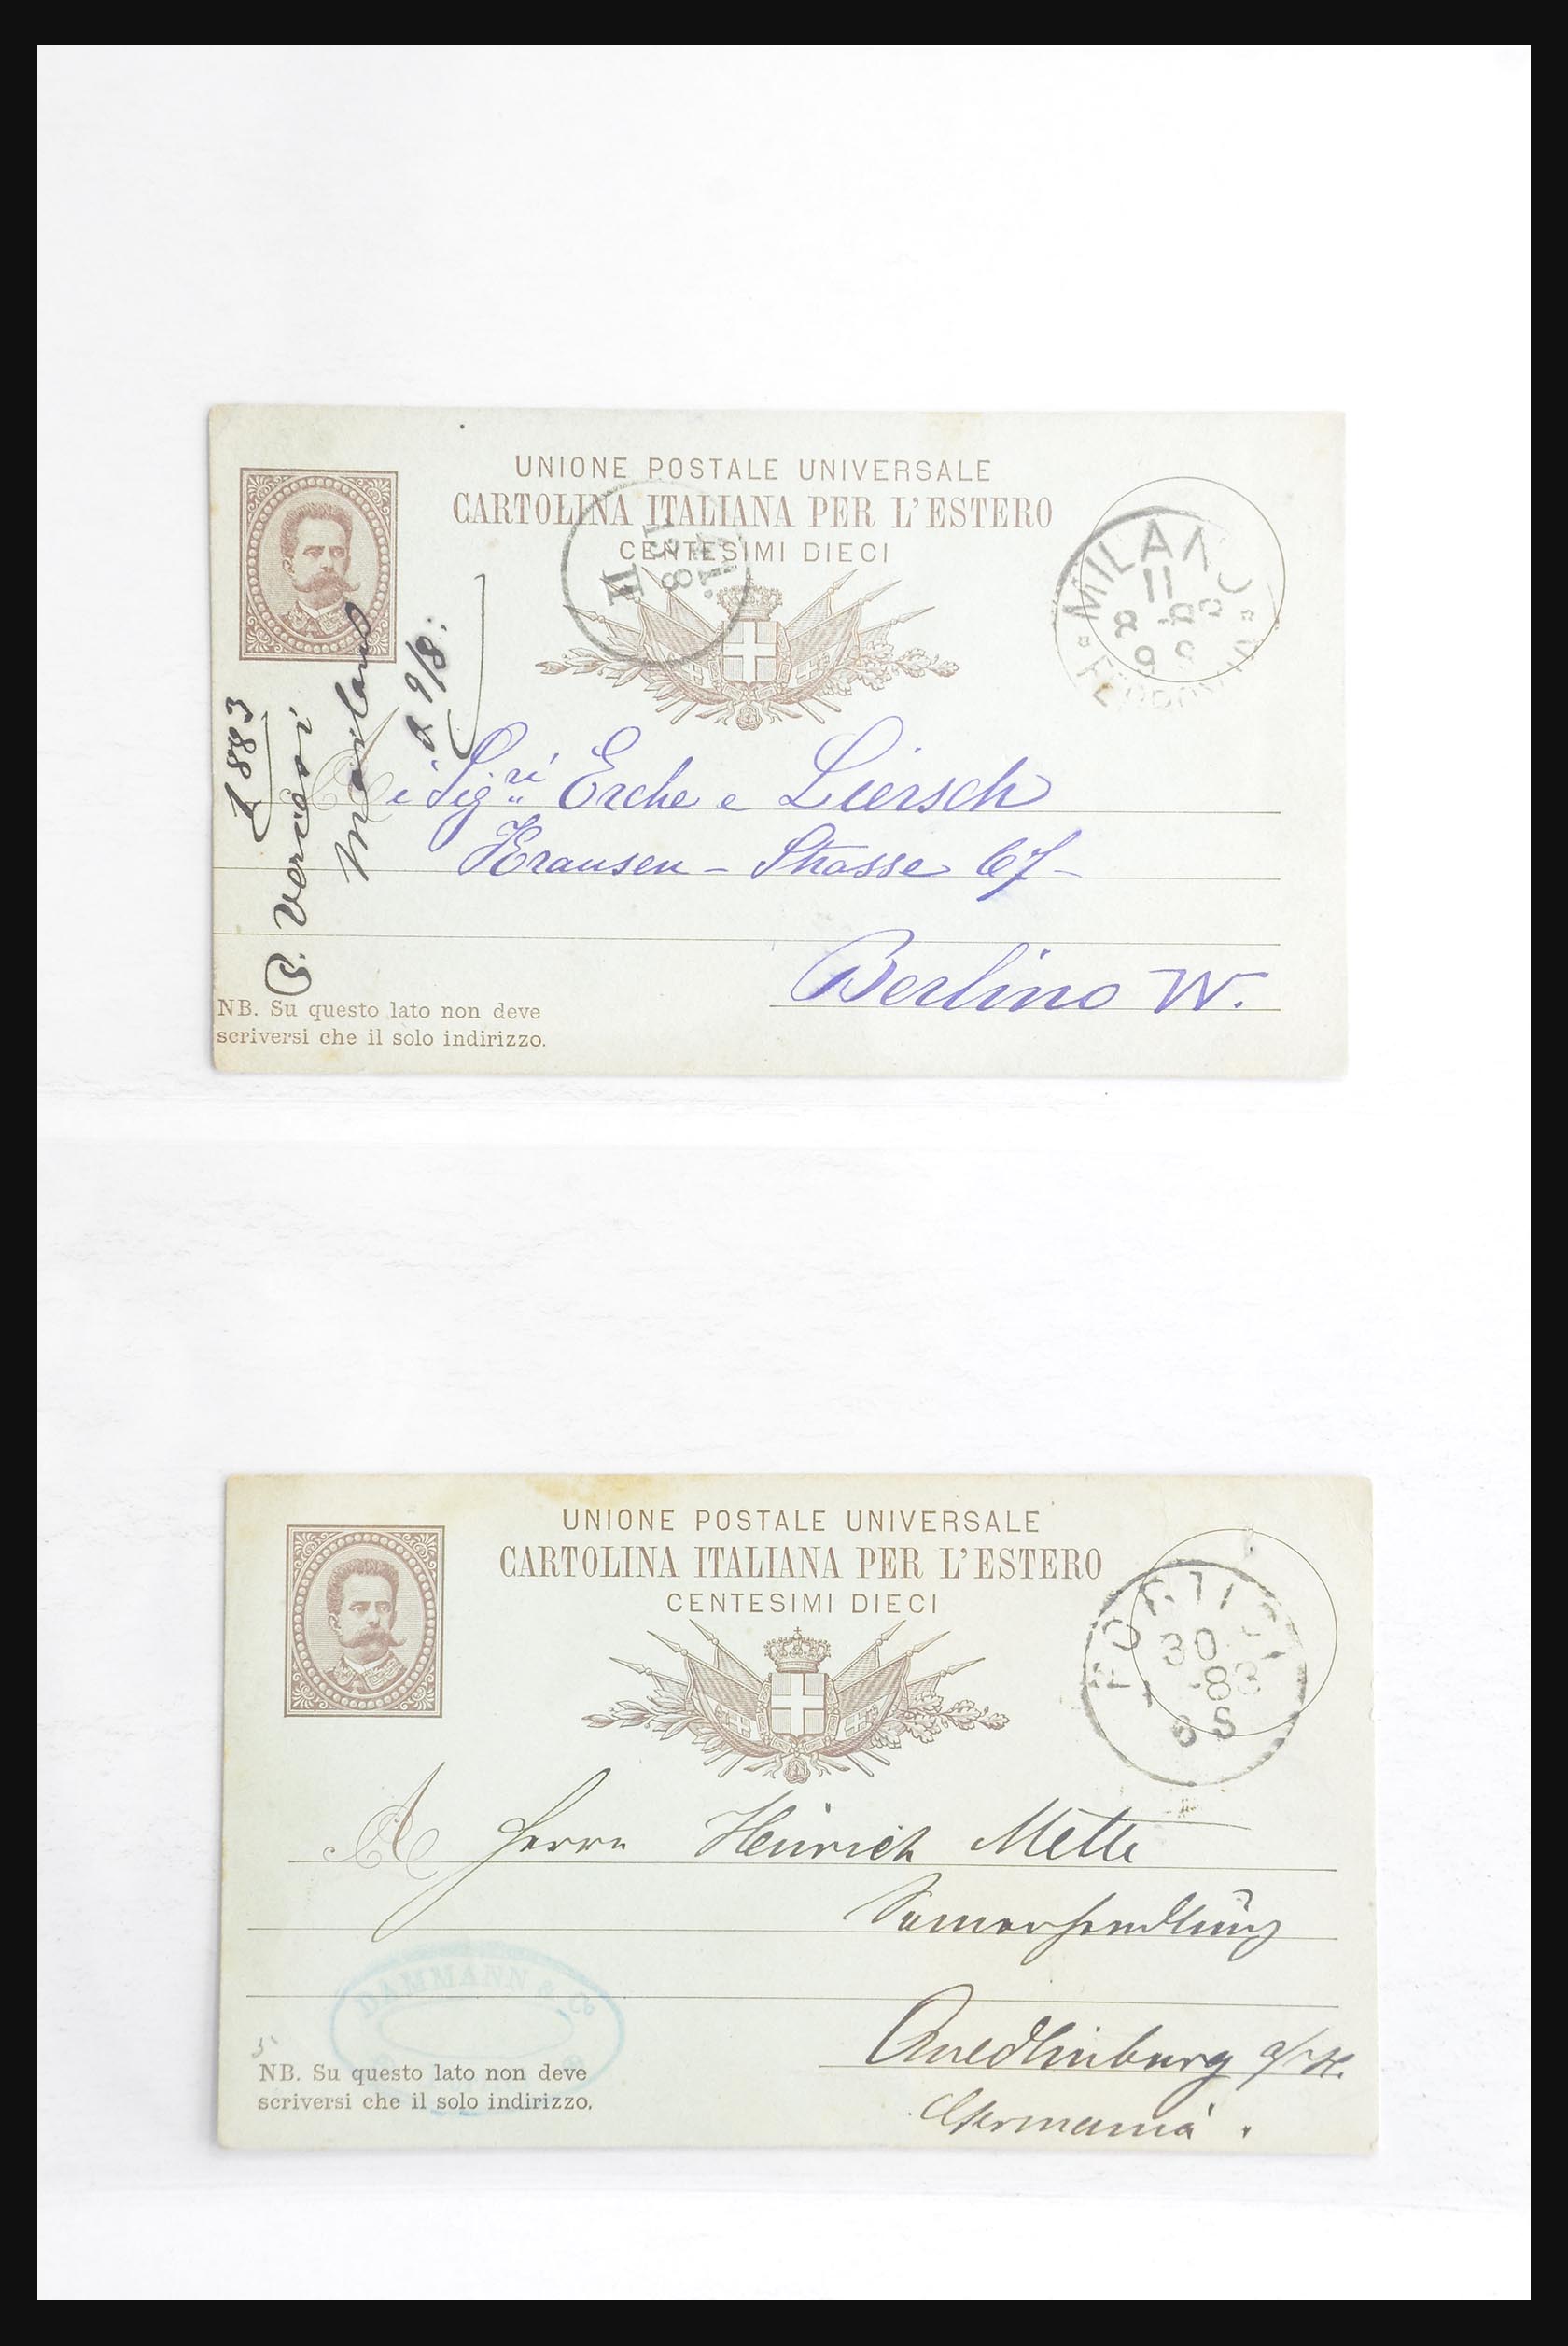 UNIONE POSTALE UNIVERSALE
CARTOLINA ITALIANA PER L'ESTERO
CENTESIMI DIECI
MILANO
11
FERROVIA
1883
Milano
d. 9/8.
Ai Sigri Erche e Liersch
Krausen - Strasse 67-
Berlino W.
NB. Su questo lato non deve
scriversi che il solo indirizzo.
UNIONE POSTALE UNIVERSALE
CARTOLINA ITALIANA PER L'ESTERO
CENTESIMI DIECI
PORTICI
30
8 S
A Herrn Heinrich Mette
Samenhandlung
DAMMANN & Co
Quedlinburg a/H.
Germania.
5
NB. Su questo lato non deve
scriversi che il solo indirizzo.